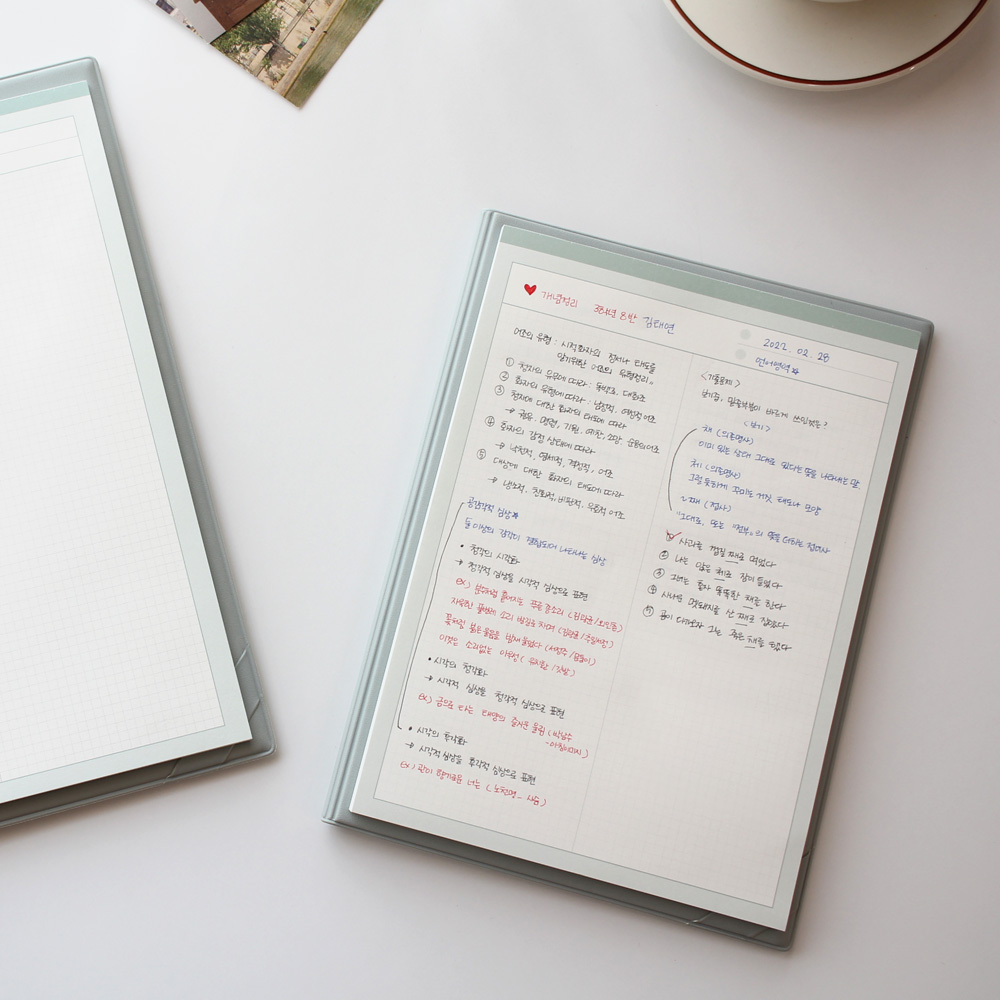 개념정리 3학년 8반 김태연
2022. 02. 28
언어영역
어조의 유형 : 시적화자의 정서나 태도를
알기위한 어조의 유형정리.
① 청자의 유무에 따라 : 독백조, 대화조
② 화자의 유형에 따라 : 남성적, 여성적 어조
③ 청자에 대한 화자의 태도에 따라
→ 권유, 명령, 기원, 예찬, 소망, 순응의 어조
④ 화자의 감정 상태에 따라
→ 낙천적, 염세적, 격정적, 어조
⑤ 대상에 대한 화자의 태도에 따라
→ 냉소적, 친화적, 비판적, 우호적 어조
공감각적 심상
둘 이상의 감각이 결합되어 나타나는 심상
• 청각의 시각화
→ 청각적 심상을 시각적 심상으로 표현
ex) 분수처럼 흩어지는 푸른 종소리 (김광균/외인촌)
자욱한 풀벌레 소리 발길로 차며 (김광균/추일서정)
꽃처럼 붉은 울음을 밤새 울었다 (서정주/문둥이)
이것은 소리없는 아우성 ( 유치환 / 깃발 )
• 시각의 청각화
→ 시각적 심상을 청각적 심상으로 표현
ex) 금으로 타는 태양의 즐거운 울림 ( 박남수
-아침이미지 )
• 시각의 후각화
→ 시각적 심상을 후각적 심상으로 표현
ex) 관이 향기로운 너는 ( 노천명 - 사슴 )
<기출문제>
보기중, 밑줄부분이 바르게 쓰인것은?
<보기>
채 (의존명사)
이미 있는 상태 그대로 있다는 뜻을 나타내는 말.
체 (의존명사)
그럴듯하게 꾸미는 거짓 태도나 모양
~째 (접사)
"그대로, 또는 "전부"의 뜻을 더하는 접미사
① 사과를 껍질 째로 먹었다
② 나는 앉은 체로 잠이 들었다
③ 그녀는 혼자 똑똑한 채를 한다
④ 사냥꾼 멧돼지를 산 째로 잡았다
⑤ 곰이 다가오자 그는 죽은 채를 했다